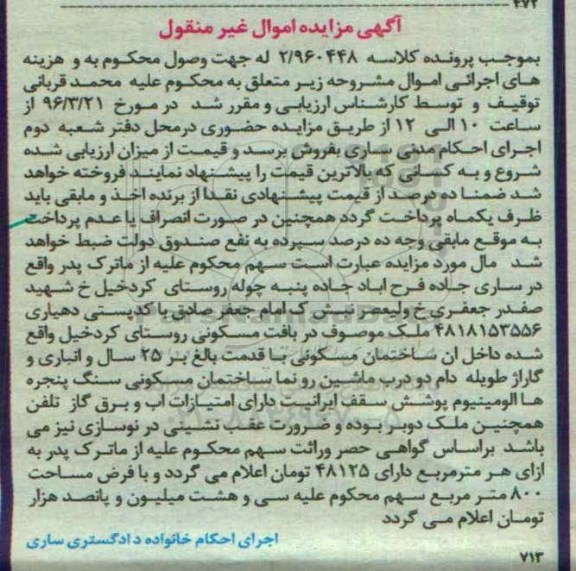 ۴۷۲
آگهی مزایده اموال غیر منقول
بموجب پرونده کلاسه ۲/۹۶۰۴۴۸ له جهت وصول محکوم به و هزینه
های اجرائی اموال مشروحه زیر متعلق به محکوم علیه محمد قربانی
توقیف و توسط کارشناس ارزیابی و مقرر شد در مورخ ۹۶/۳/۲۱ از
ساعت ۱۰ الی ۱۲ از طریق مزایده حضوری درمحل دفتر شعبه دوم
اجرای احکام مدنی ساری بفروش برسد و قیمت از میزان ارزیابی شده
شروع و به کسانی که بالاترین قیمت را پیشنهاد نمایند فروخته خواهد
شد ضمنا ده درصد از قیمت پیشنهادی نقدا از برنده اخذ و مابقی باید
ظرف یکماه پرداخت گردد همچنین در صورت انصراف یا عدم پرداخت
به موقع مابقی وجه ده درصد سپرده به نفع صندوق دولت ضبط خواهد
شد مال مورد مزایده عبارت است سهم محکوم علیه از ماترک پدر واقع
در ساری جاده فرح اباد جاده پنبه چوله روستای کردخیل خ شهید
صفدر جعفری خ ولیعصر نبش ک امام جعفر صادق با کدپستی دهیاری
۴۸۱۸۱۵۳۵۵۶ ملک موصوف در بافت مسکونی روستای کردخیل واقع
شده داخل ان ساختمان مسکونی با قدمت بالغ بر ۲۵ سال و انباری و
گاراژ طویله دام دو درب ماشین رو نما ساختمان مسکونی سنگ پنجره
ها الومینیوم پوشش سقف ایرانیت دارای امتیازات اب و برق گاز تلفن
همچنین ملک دوبر بوده و ضرورت عقب نشینی در نوسازی نیز می
باشد براساس گواهی حصر وراثت سهم محکوم علیه از ماترک پدر به
ازای هر مترمربع دارای ۴۸۱۲۵ تومان اعلام می گردد و با فرض مساحت
۸۰۰ متر مربع سهم محکوم علیه سی و هشت میلیون و پانصد هزار
تومان اعلام می گردد
اجرای احکام خانواده دادگستری ساری
۷۱۳